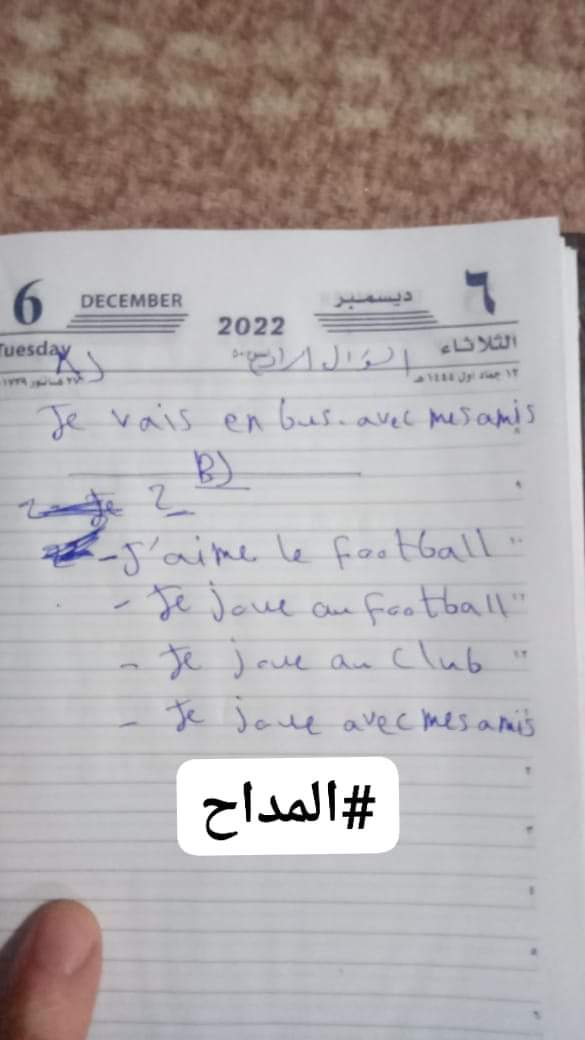 6 DECEMBER 2022 ديسمبر ٦
Tuesday الثلاثاء
A) السؤال الرابع
١٢ جماد اول ١٤٤٤هـ
Je vais en bus. avec mes amis
B)
2 - Je 2
- J'aime le football
- Je joue au football
- Je joue au club
- Je joue avec mes amis
#المداح